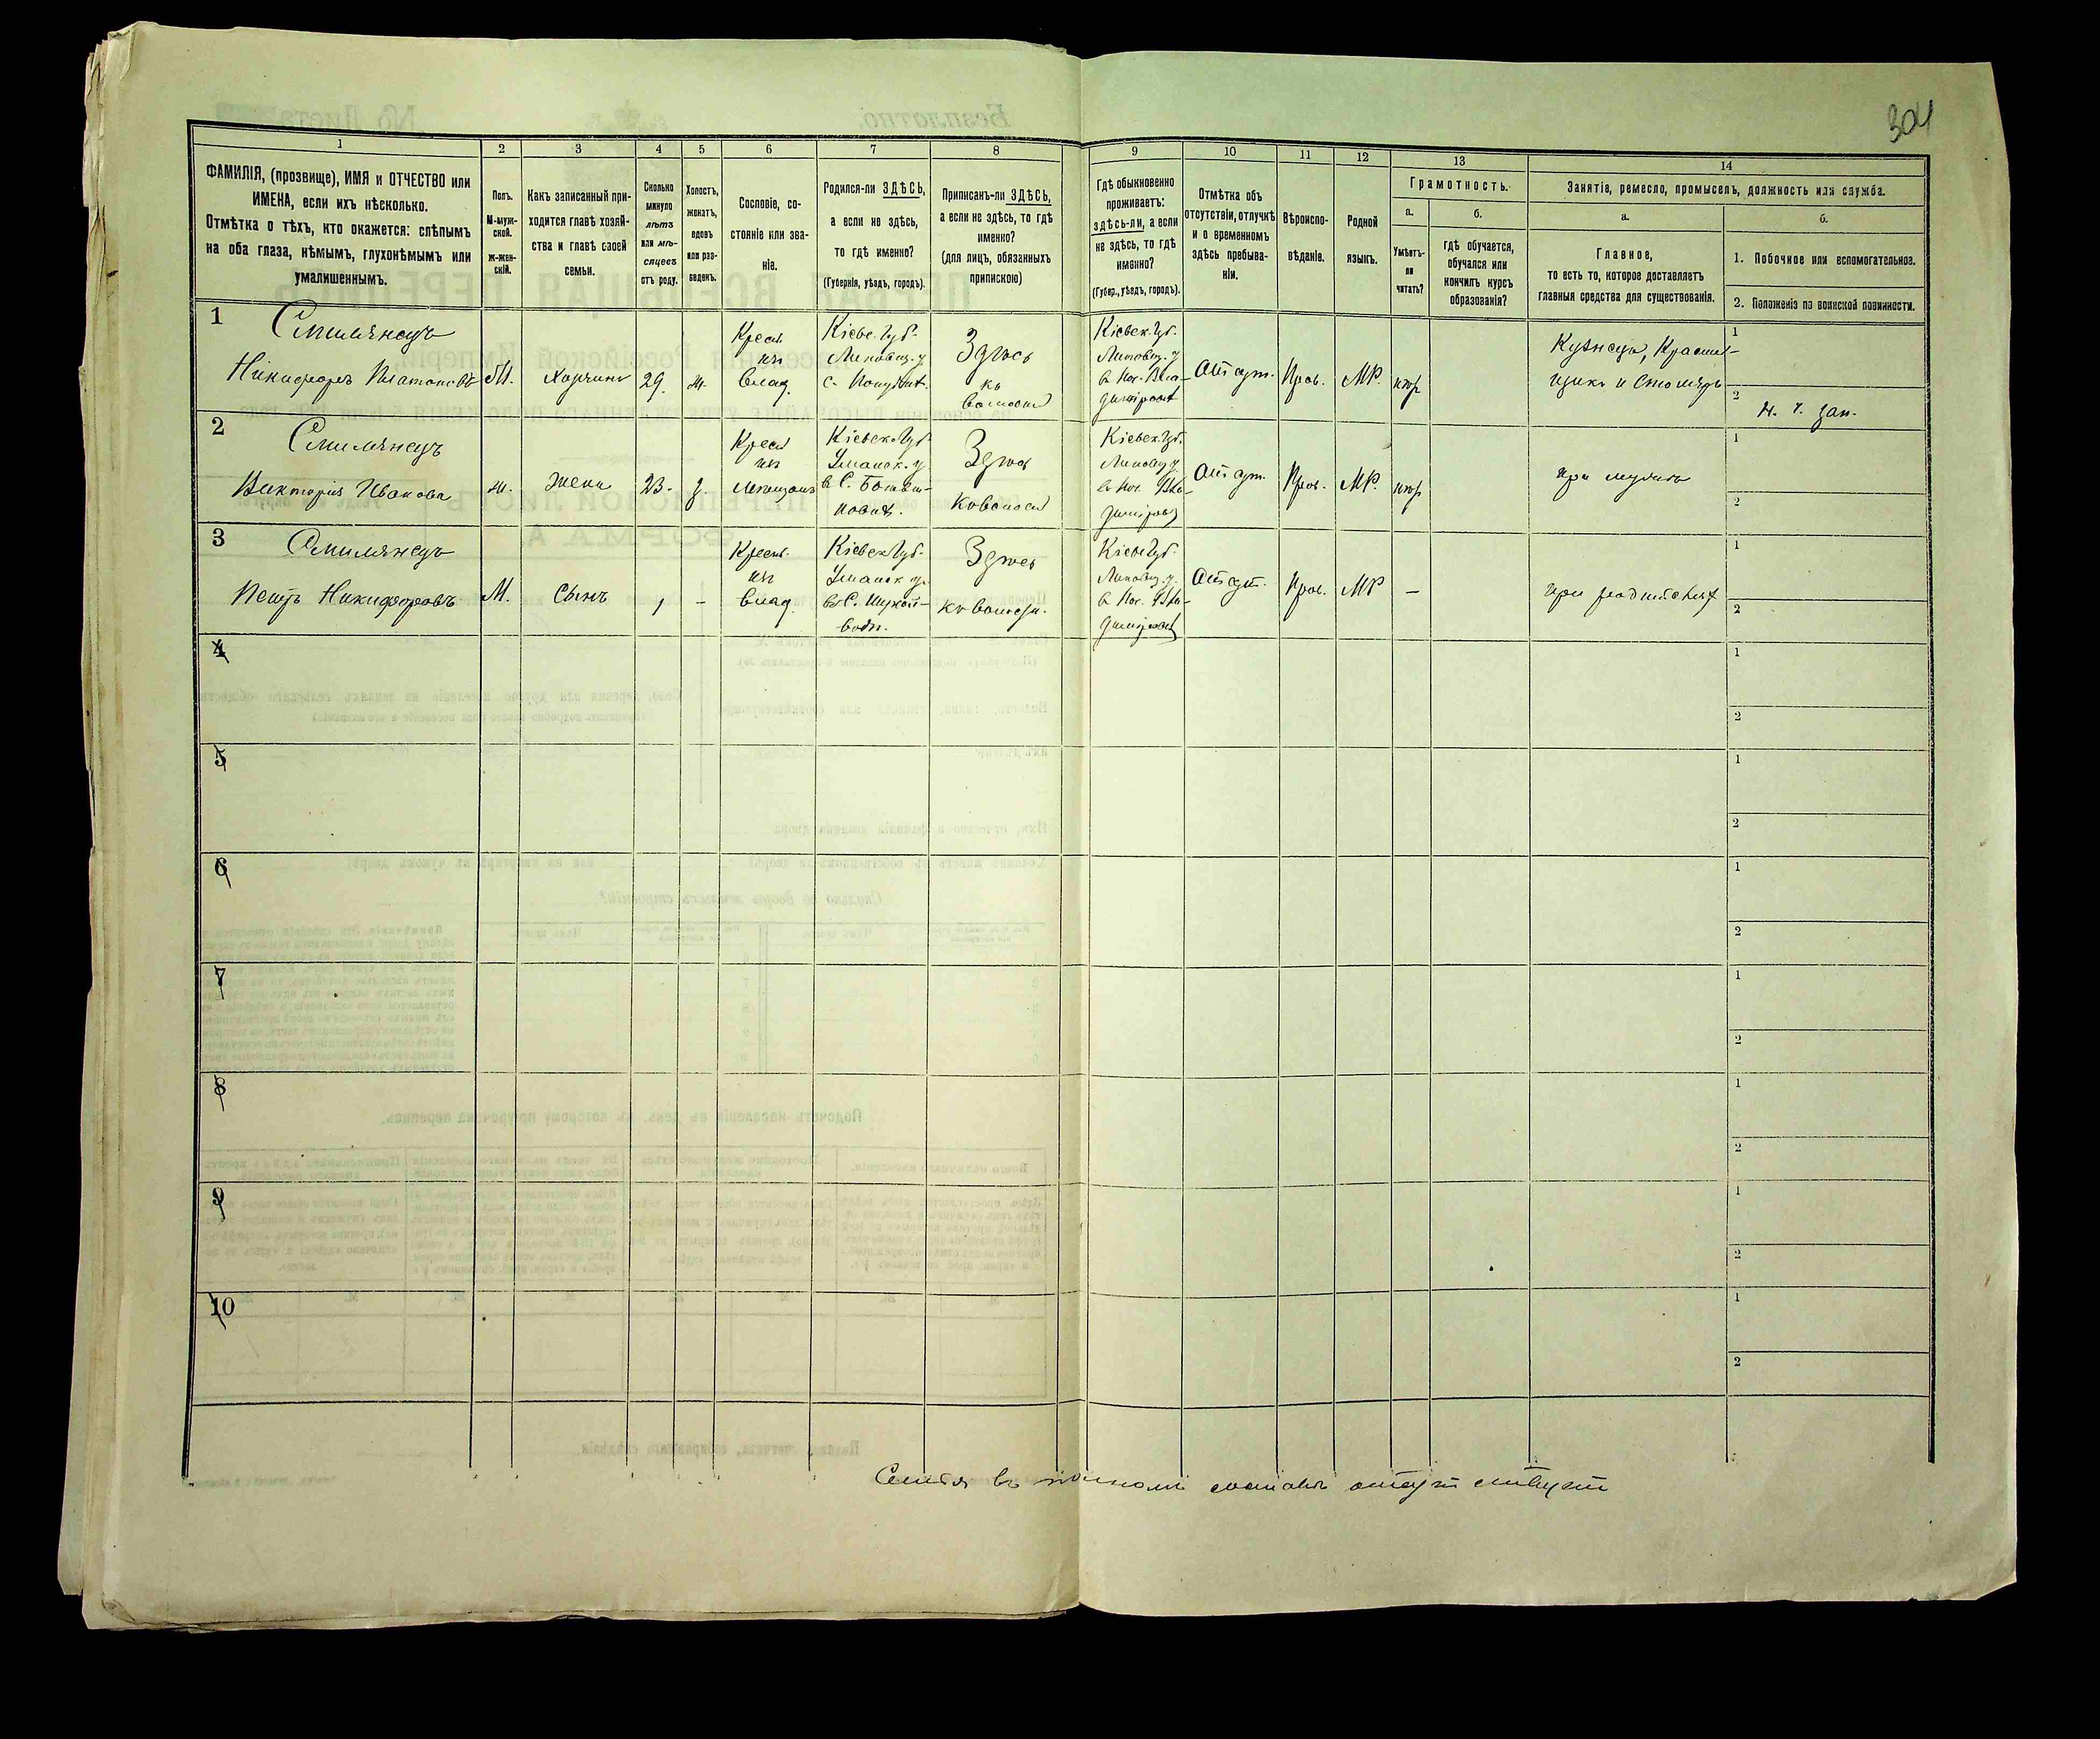 304
1
2
3
4
5
6
7
8
9
10
11
12
13
14
ФАМИЛІЯ, (прозвище), ИМЯ и ОТЧЕСТВО или
ИМЕНА, если ихъ нѣсколько.
Отмѣтка о тѣхъ, кто окажется: слѣпымъ
на оба глаза, нѣмымъ, глухонѣмымъ или
умалишеннымъ.
Полъ.
М-муж-
ской.
Ж-жен-
скій.
Какъ записанный при-
ходится главѣ хозяй-
ства и главѣ своей
семьи.
Сколько
минуло
лѣтъ
или мѣ-
сяцевъ
отъ роду.
Холостъ,
женатъ,
вдовъ
или раз-
веденъ.
Сословіе, со-
стояніе или зва-
ніе.
Родился-ли ЗДѢСЬ,
а если не здѣсь,
то гдѣ именно?
(Губернія, уѣздъ, городъ).
Приписанъ-ли ЗДѢСЬ,
а если не здѣсь, то гдѣ
именно?
(для лицъ, обязанныхъ
припискою)
Гдѣ обыкновенно
проживаетъ:
здѣсь-ли, а если
не здѣсь, то гдѣ
именно?
(Губер., уѣздъ, городъ).
Отмѣтка объ
отсутствіи, отлучкѣ
и о временномъ
здѣсь пребыва-
ніи.
Вѣроиспо-
вѣданіе.
Родной
языкъ.
Грамотность.
а.
Умѣетъ-
ли
читать?
б.
гдѣ обучается,
обучался или
кончилъ курсъ
образованія?
Занятіе, ремесло, промыселъ, должность или служба.
а.
Главное,
то есть то, которое доставляетъ
главныя средства для существованія.
б.
1. Побочное или вспомогательное.
2. Положеніе по воинской повинности.
1
Смилянецъ
Никифоръ Платоновъ
М.
Хозяинъ
29.
ж.
Крест.
изъ
влад.
Кіевс. губ.
Липовец. у
Здѣсь
къ
волости
Кіевск. губ.
Липовец. у
Отсут.
Прав.
МР.
Кузнецъ,
и Столяръ
1
2
2
Смилянецъ
Виктория Иванова
ж.
Жена
23.
Крест
изъ
Кіевск. губ
Уманск. у
Здѣсь
къ волости
Кіевск. губ.
Липовец у
Отсут.
Прав.
МР.
при мужѣ
1
2
3
Смилянецъ
Петръ Никифоровъ
М.
Сынъ
1
-
Крест.
изъ
влад.
Кіевск. губ.
Уманск у.
Здѣсь
къ волости.
Кіев. губ.
Липовец. у.
Отсут.
Прав.
МР
-
при родителяхъ
1
2
4
1
2
5
1
2
6
1
2
7
1
2
8
1
2
9
1
2
10
1
2
Семья въ полномъ составѣ отсутствуетъ